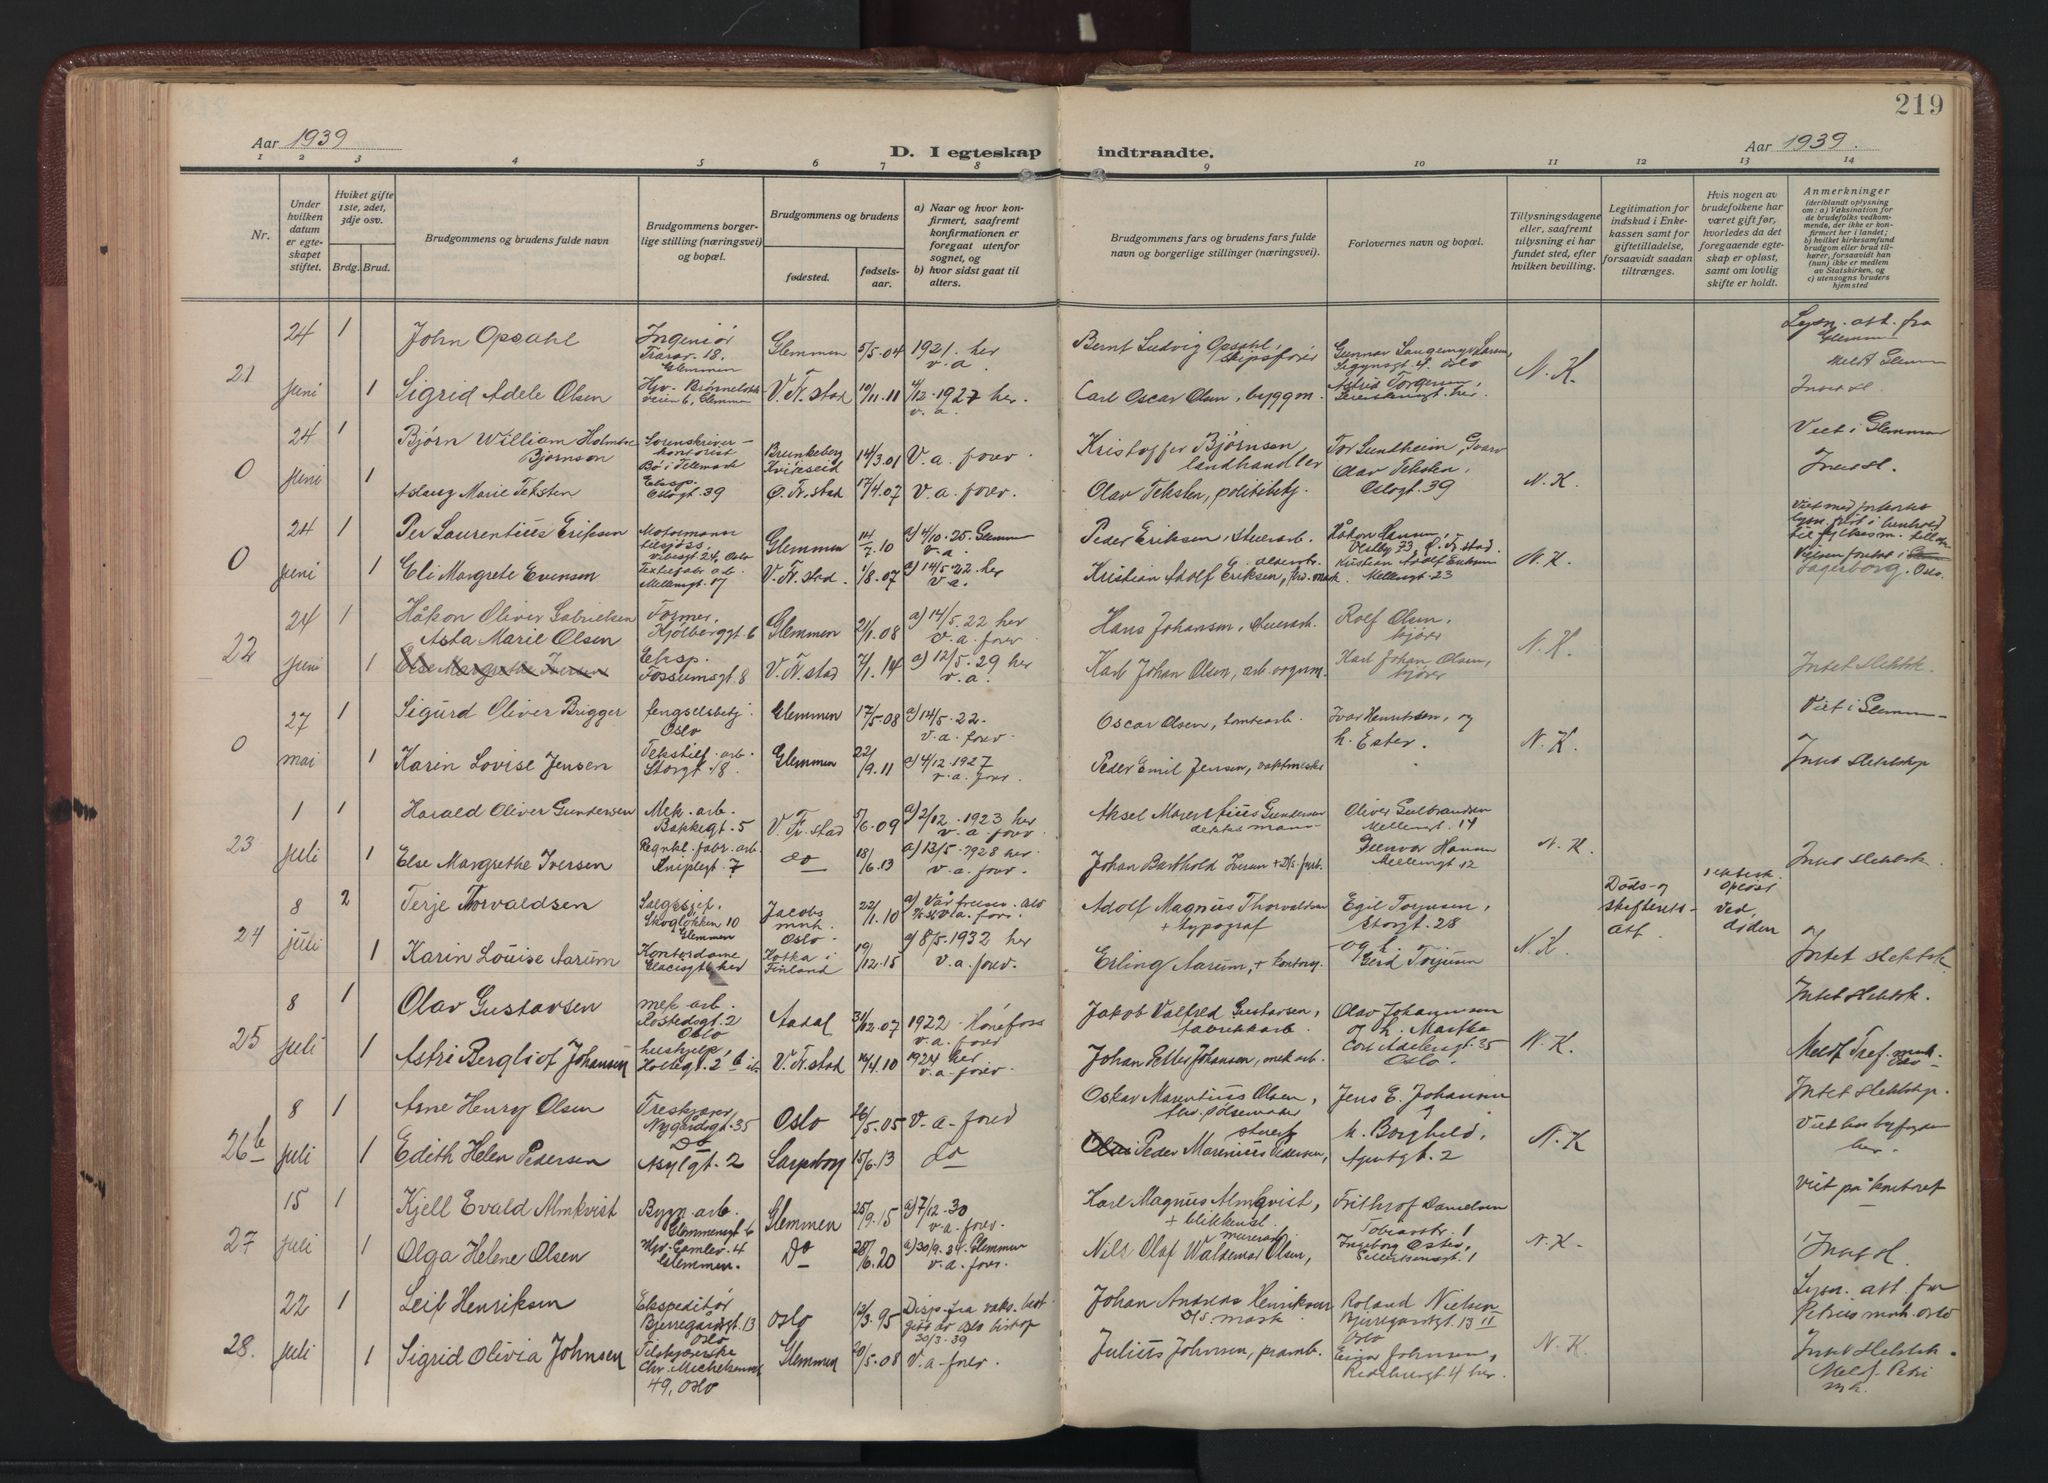 219
Aar 1939
D. I egteskap indtraadte.
Aar 1939.
1 2 3 4 5 6 7 8 9 10 11 12 13 14
Nr.
Under hvilken datum er egteskapet stiftet.
Hviket gifte 1ste, 2det, 3dje osv.
Brdg. Brud.
Brudgommens og brudens fulde navn
Brudgommens borgerlige stilling (næringsvei) og bopæl.
Brudgommens og brudens
fødested.
fødselsaar.
a) Naar og hvor konfirmert, saafremt konfirmationen er foregaat utenfor sognet, og
b) hvor sidst gaat til alters.
Brudgommens fars og brudens fars fulde navn og borgerlige stillinger (næringsvei).
Forlovernes navn og bopæl.
Tillysningsdagene eller, saafremt tillysning ei har fundet sted, efter hvilken bevilling.
Legitimation for indskud i Enkekassen samt for giftetilladelse, forsaavidt saadan tiltrænges.
Hvis nogen av brudefolkene har været gift før, hvorledes da det foregaaende egteskap er opløst, samt om lovlig skifte er holdt.
Anmerkninger
(deriblandt oplysning om: a) Vaksination for de brudefolks vedkommende, der ikke er konfirmert her i landet; b) hvilket kirkesamfund brudgom eller brud tilhører, forsaavidt han (hun) ikke er medlem av Statskirken, og c) utensogns bruders hjemsted
21
24 juni
1
John Opsahl
Ingeniør
Trarav. 18.
Glemmen
Glemmen
5/5-04
1921. her
v. a.
Bernt Ludvig Opsahl,
skipsfører
Sigynsgt. 4. Oslo
N. K.
Lysn. att. fra
Glemmen
1
Sigrid Adele Olsen
veien 6, Glemmen
V. Fr. stad
10/11.11
4/12-1927 her.
v. a.
Carl Oscar Olsen, byggm.
Astrid Torgersen,
0
24 juni
1
Bjørn William Holmboe
Bjørnson
Sorenskriver-
kontorist
Bø i Telemark
Brunkeberg
Kviteseid
14/3.01
V. a. forev.
Kristoffer Bjørnsen,
landhandler
Tor Sundheim, Gvarv
N. K.
Viet i Glemmen
1
Aslaug Marie Teksten
Eksp.
Oslogt. 39
Ø. Fr. stad
17/4.07
V. a. forev.
Olav Teksten, politibetj.
Olav Teksten,
Oslogt. 39
0
24 juni
1
Per Laurentius Eriksen
Motormann
tilsjøss.
Vibesgt. 24, Oslo
Glemmen
14/7.10
a) 4/10. 25. Glemmen
v. a.
Peder Eriksen, stuerarb.
Håkon Hansen,
N. K.
1
Eli Margrete Evensen
Mellemgt. 17
V. Fr. stad.
1/8.07
a) 14/5. 22. her
v. a.
Kristian Adolf Eriksen,
Mellemgt. 23
Fagerborg. Oslo.
22
24 juni
1
Håkon Oliver Gabrielsen
Former,
Kjølberggt. 6
Glemmen
21/1.08
a) 14/5. 22 her
v. a. forev.
Hans Johansen, stuerarb.
Rolf Olsen,
kjører
N. K.
1
Asta Marie Olsen
Else Margrethe Iversen
Eksp.
Fossumsgt. 8
V. Fr. stad
7/1.14
a) 12/5. 29 her
v. a.
Karl Johan Olsen, arb.
Karl Johan Olsen,
kjører
Intet slektsk.
0
27 mai
1
Sigurd Oliver Brigger
fengselsbetj.
Oslo
Glemmen
17/5.08
a) 14/5. 22.
v. a. forev.
Oscar Olsen, tomtearb.
Ivar Henriksen, og
h. Ester.
N. K.
Viet i Glemmen
1
Karin Lovise Jensen
Tekstilf. arb.
Storgt. 18.
Glemmen
22/9.11
a) 4/12. 1927
v. a. forev.
Peder Emil Jensen, vaktmester
Intet slektskp
23
1 juli
1
Harald Oliver Gundersen
Mek. arb.
Bakkegt. 5
V. Fr. stad
5/6.09
a) 2/12. 1923 her
v. a. forev.
Aksel Marentius Gundersen
dekksmann
Oliver Gulbrandsen
Mellemgt. 14
N. K.
1
Else Margrethe Iversen
Regnkl. fabr. arb.
Kniplegt. 7
do
18/6.13
a) 13/5. 1928 her.
v. a. forev.
Johan Barthold Iversen
Gunvor Hansen
Mellemgt. 12
Intet slektsk.
24
8 juli
2
Terje Thorvaldsen
Salgssjef,
Skogløkken 10
Glemmen
Jacobs
mnh.
Oslo.
22/1.10
a) Vår frelser. Oslo
v. a. forev.
Adolf Magnus Thorvaldsen
+ typograf
Egil Torjusen,
Storgt. 28
N. K.
Døds- og
skifteretts-
att.
slektsk.
opløst
ved
døden
1
Karin Louise Aarum
Kontordame
Glacisgt 6 her
Kotka i
Finland
19/12.15
a) 8/5. 1932 her
v. a. forev.
Erling Aarum, + kontorg.
og h.
Gerd Torjusen
Intet slektsk
25
8 juli
1
Olav Gustavsen
mek. arb.
Rostedsgt. 2
Oslo
Aadal
31/12.07
1922. Hønefoss
v. a. forev
Jakob Valfred Gustavsen,
fabrikkarb.
Olav Johannessen
og h. Martha
N. K.
Intet slektsk.
1
Astri Bergliot Johansen
hushjelp,
Holtegt. 26
V. Fr. stad
14/4.10
1924 her
v. a. forev.
Johan Petter Johansen, mek arb.
Cort Adelersgt. 35
Oslo.
26b
8 juli
1
Arne Henry Olsen
Treskjærer,
Nygårdsgt. 35
Oslo
26/5.05
V. a. forev
Oskar Marentius Olsen,
Jens E. Johansen
N. K
Intet slektskp.
1
Edith Helen Pedersen
Do
Asylgt. 2
Sarpsborg
15/6.13
do
Peder Marinius Pedersen,
h. Borghild,
Agentgt. 2
Viet hos byfogden
her.
27
15 juli
1
Kjell Evald Almkvist
Bygn. arb.
Glemmengt. 6
Glemmen
25/9.15
a) 7/12. 30
v. a. forev.
Karl Magnus Almkvist,
+ blikkensl.
Frithjof Danielsen
N. K.
Viet på kontoret
1
Olga Helene Olsen
Glemmen.
Do
28/6.20
a) 30/9. 34. Glemmen
v. a. forev.
Nils Olaf Waldemar Olsen,
murerarb.
28.
22 juli
1
Leif Henriksen
Ekspeditør
Bjerregårdsgt. 13
Oslo
Oslo
12/3.95
Disp. fra vaks. best.
gitt av Oslo biskop
30/3. 39
Johan Andreas Henriksen
Roland Nielsen
Bjerregårdsgt. 13 II
Oslo
N. K.
Lysn. att. fra
Petrus mnh. Oslo
1
Sigrid Olivia Johnsen
Tilskjærerske
Chr. Michelsensgt.
49, Oslo
Glemmen
20/5.08
V. a. forev.
Julius Johnsen, pramb.
Einar Johnsen,
Intet slektsk.
Meldt Petri
mh.